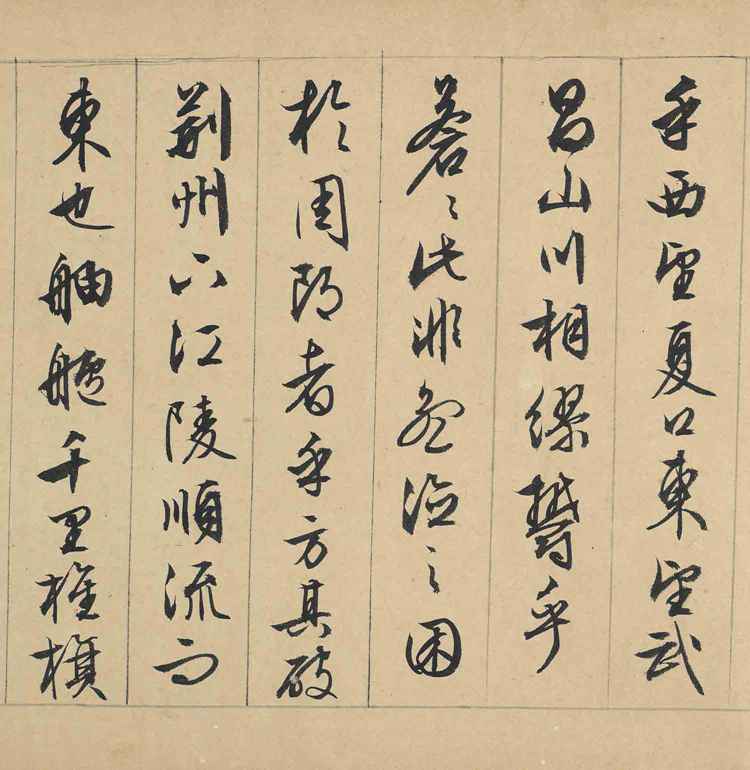 乎西望夏口東望武
昌山川相繆鬱乎
蒼〻此非孟德之困
於周郎者乎方其破
荊州下江陵順流而
東也舳艫千里旌旗